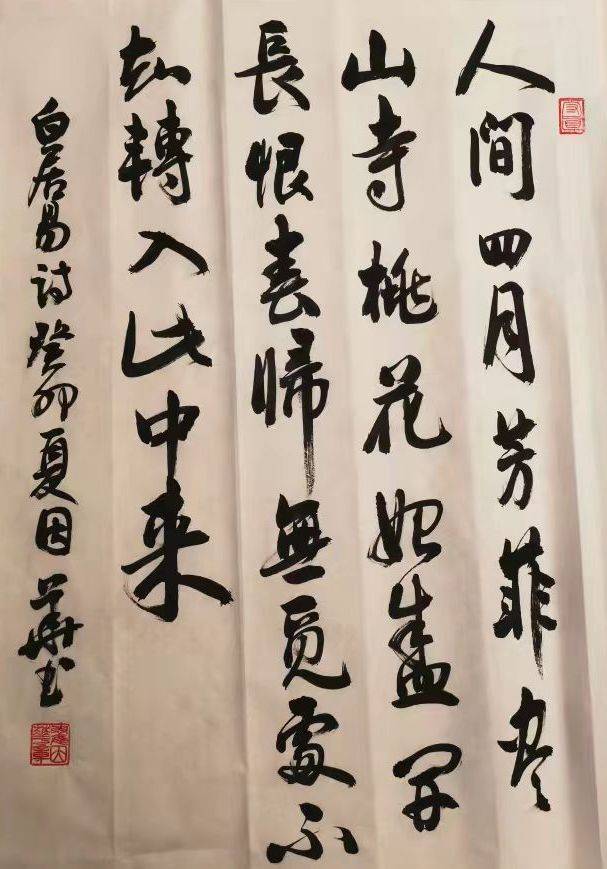 人間四月芳菲尽
山寺桃花始盛開
長恨春歸無覓處不
知轉入此中来
白居易诗癸卯夏因華书